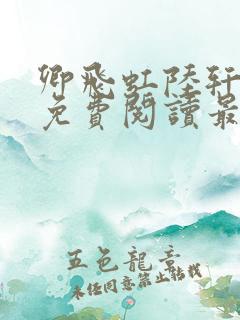 卿飛虹陸軒
免費閱讀最
五色龍章
未經同意禁止轉載